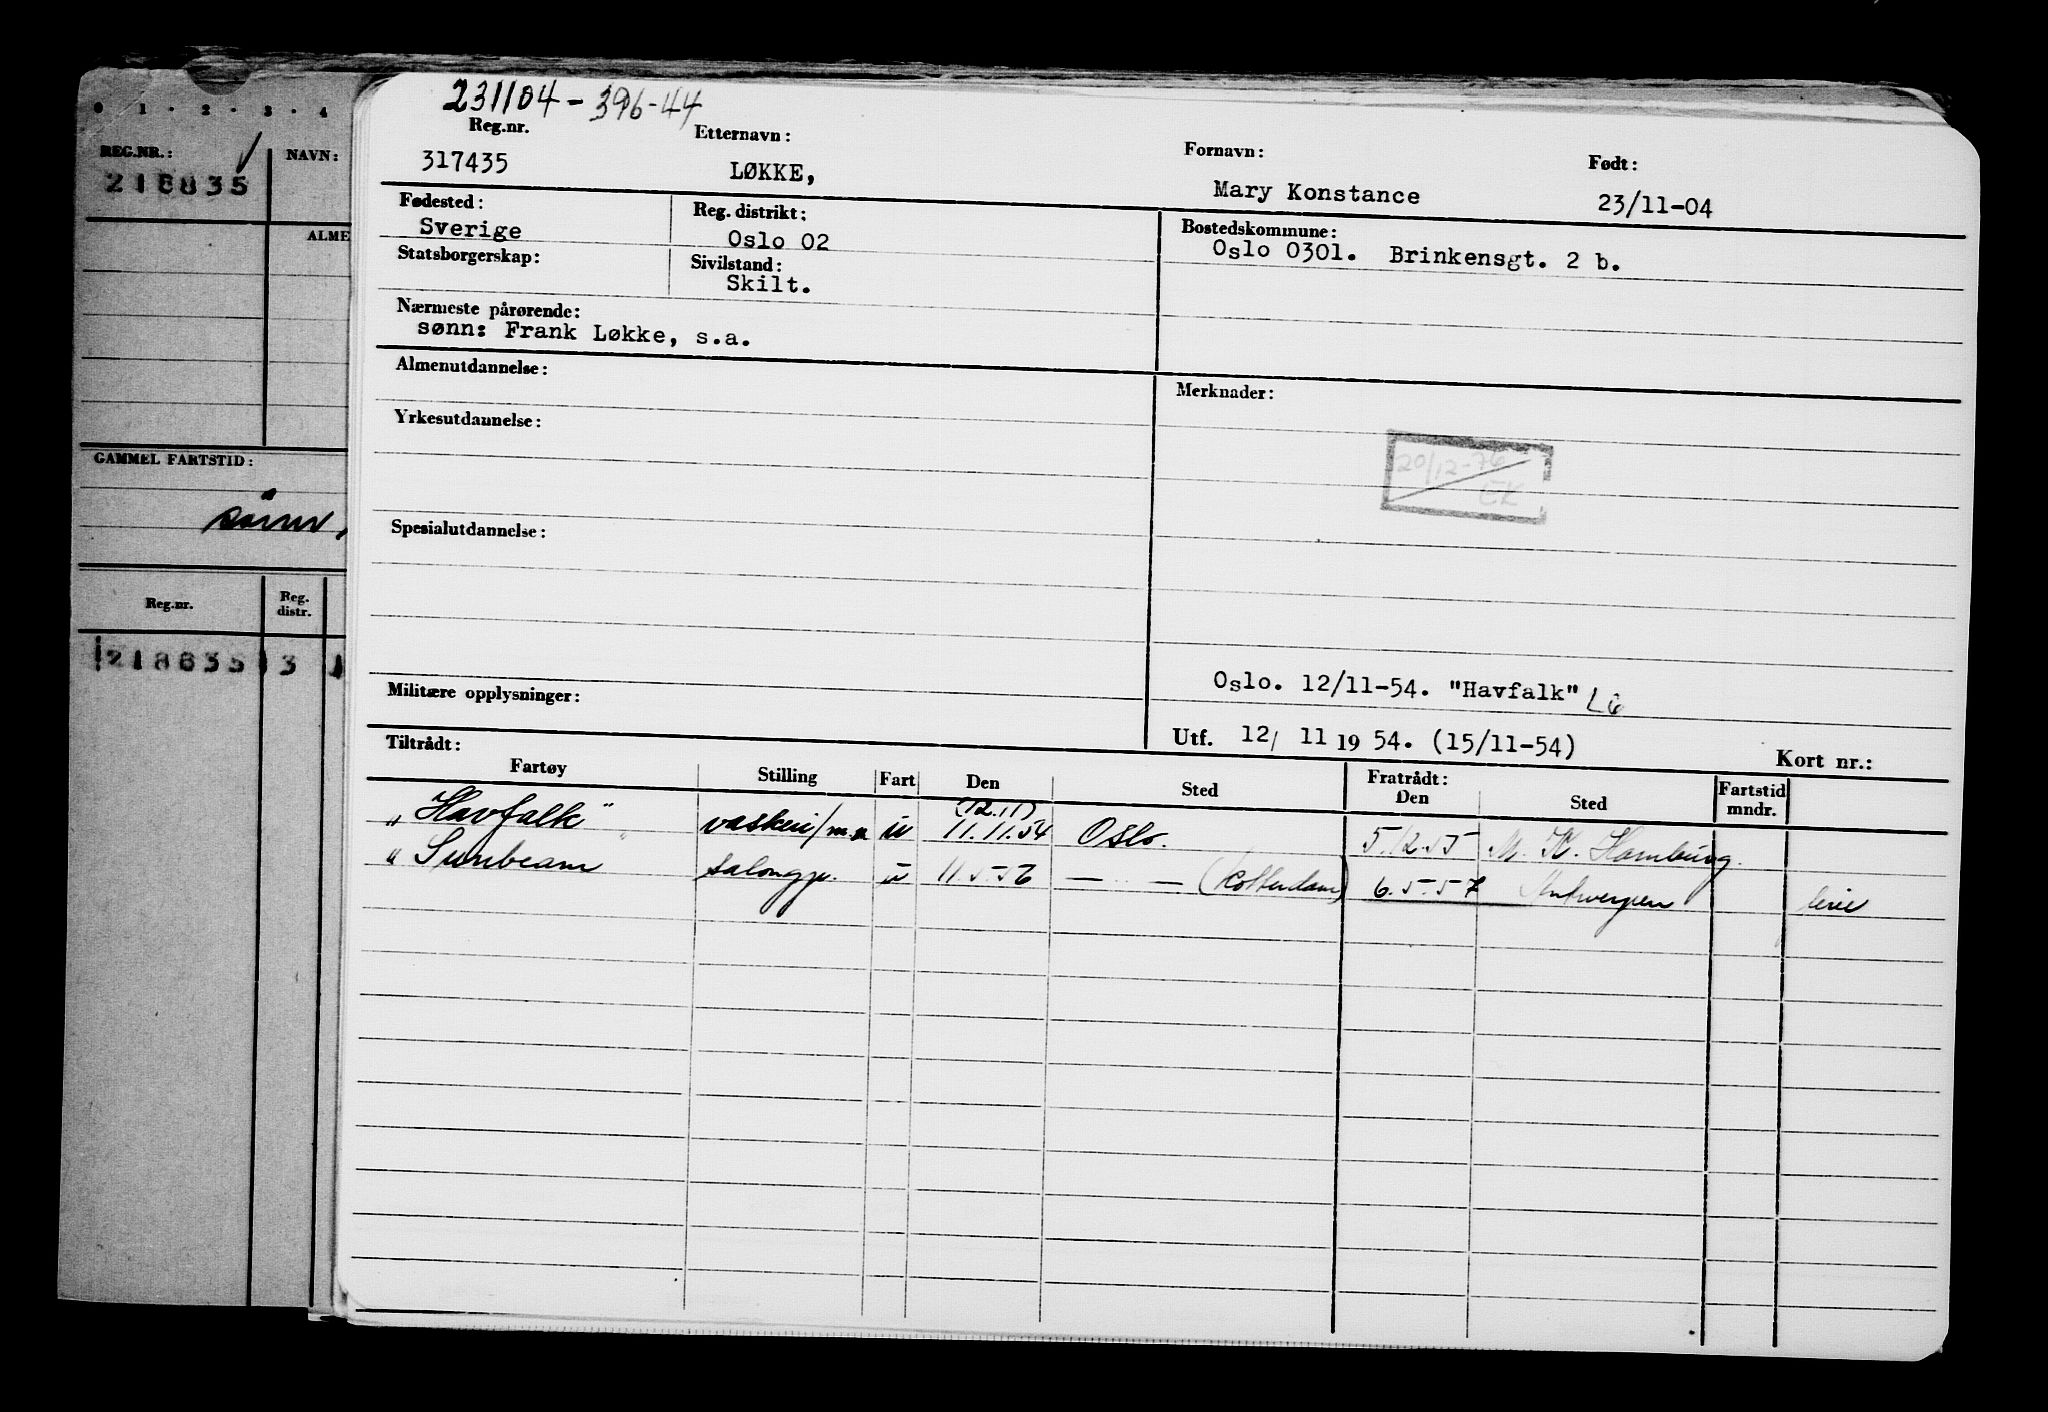 0 1 - 2 - 3 - 4
REG.NR.:
NAVN:
ALME
GAMMEL FARTSTID:
Reg.nr.
Reg. distr.
218635 3 1
231104 - 396-44
Reg.nr. Etternavn: Fornavn: Født:
317435 LØKKE, Mary Konstance 23/11-04
Fødested: Reg. distrikt: Bostedskommune:
Sverige Oslo 02 Oslo 0301. Brinkensgt. 2 b.
Statsborgerskap: Sivilstand:
Skilt.
Nærmeste pårørende:
sønn: Frank Løkke, s.a.
Almenutdannelse: Merknader:
Yrkesutdannelse:
20/12-76
EK
Spesialutdannelse:
Oslo. 12/11-54. "Havfalk"
Militære opplysninger:
Utf. 12/ 11 19 54. (15/11-54) Kort nr.:
Tiltrådt: Fratrådt:
Fartøy Stilling Fart Den Sted Den Sted Fartstid mndr.
(12.11)
"Havfalk" vaskeri/m.a u 11.11.54 Oslo. 5.12.55 M. K. Hamburg.
"Sunbeam" salongp. u 11.5.56 — " — (Rotterdam) 6.5.57 Antwerpen ferie